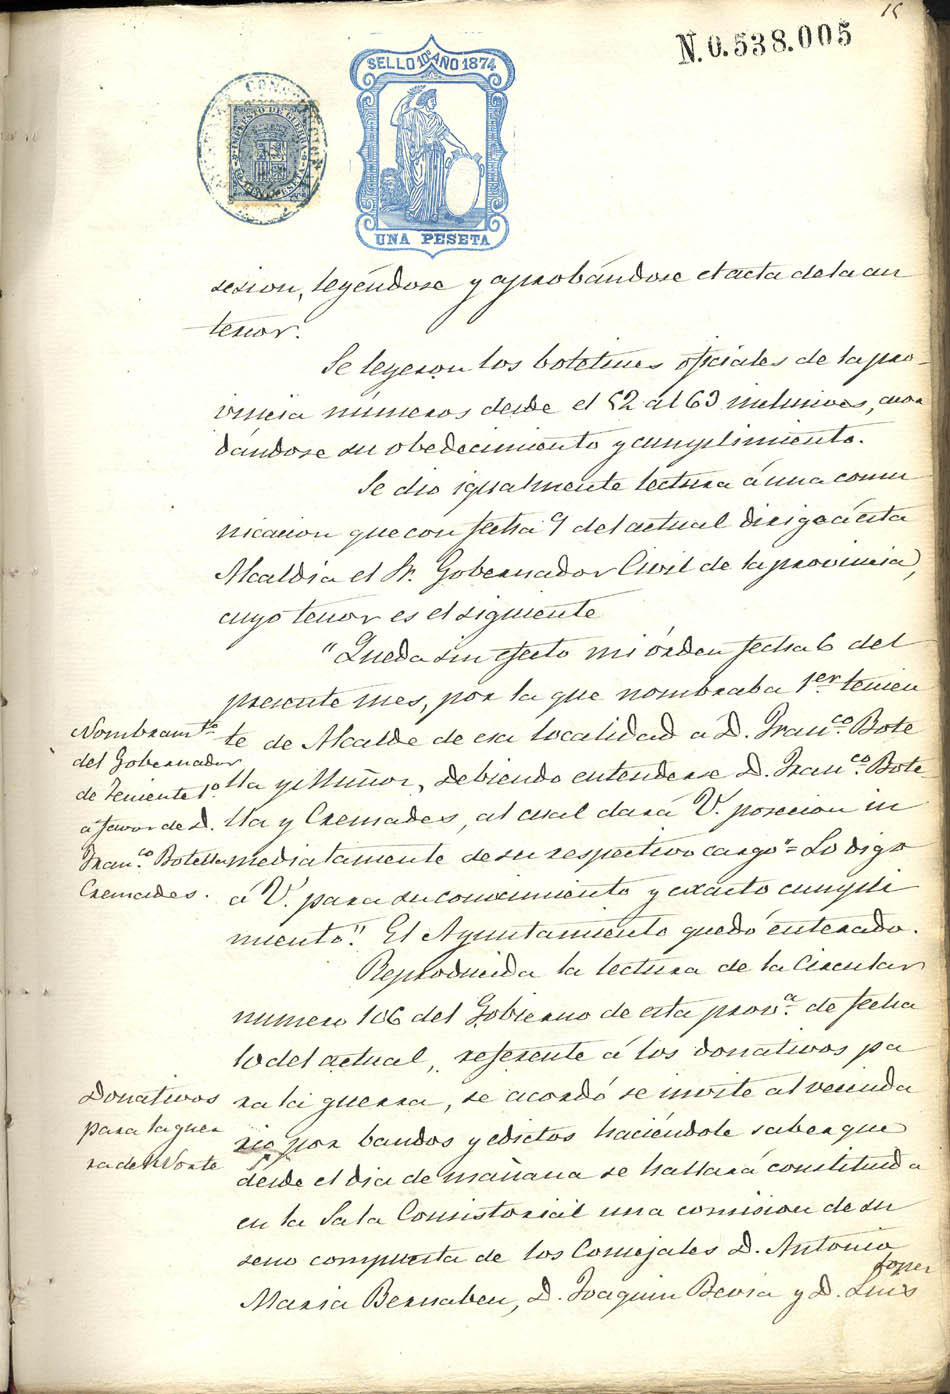 15
N.0.538.005
SELLO 10º AÑO 1874
IMPUESTO DE GUERRA
UNA PESETA
sesion, leyéndose y aprobándose el acta de la an
terior.
Se leyeron los boletines oficiales de la pro-
vincia números desde el 52 al 63 inclusives, acor
dándose su obedecimiento y cumplimiento.
Se dio igualmente lectura á una comu
nicacion que con fecha 9 del actual dirige á esta
Alcaldía el Sr. Gobernador Civil de la provincia,
cuyo tenor es el siguiente
"Queda sin efecto mi órden fecha 6 del
presente mes, por la que nombraba 1er tenien
te de Alcalde de esa localidad á D. Franco. Bote
lla y Muñoz, debiendo entenderse D. Franco. Bote-
lla y Cremades, al cual dará V. posecion in
mediatamente de su respectivo cargo"= Lo digo
á V. para su conocimiento y exacto cumpli
miento." El Ayuntamiento quedó enterado.
Nombramto
del Gobernador
de Teniente 1º
a favor de D.
Franco. Botella
Cremades.
Reproducida la lectura de la Circular
numero 106 del Gobierno de esta prova. de fecha
10 del actual, referente á los donativos pa
ra la guerra, se acordó se invite al vecinda
rio por bandos y edictos haciéndole saber que
desde el dia de mañana se hallará constituida
en la Sala Consistorial una comision de su
seno compuesta de los Concejales D. Antonio
Maria Bernabeu, D. Joaquin Bevia y D. Luis
Loper
Donativos
para la guer
ra del Norte